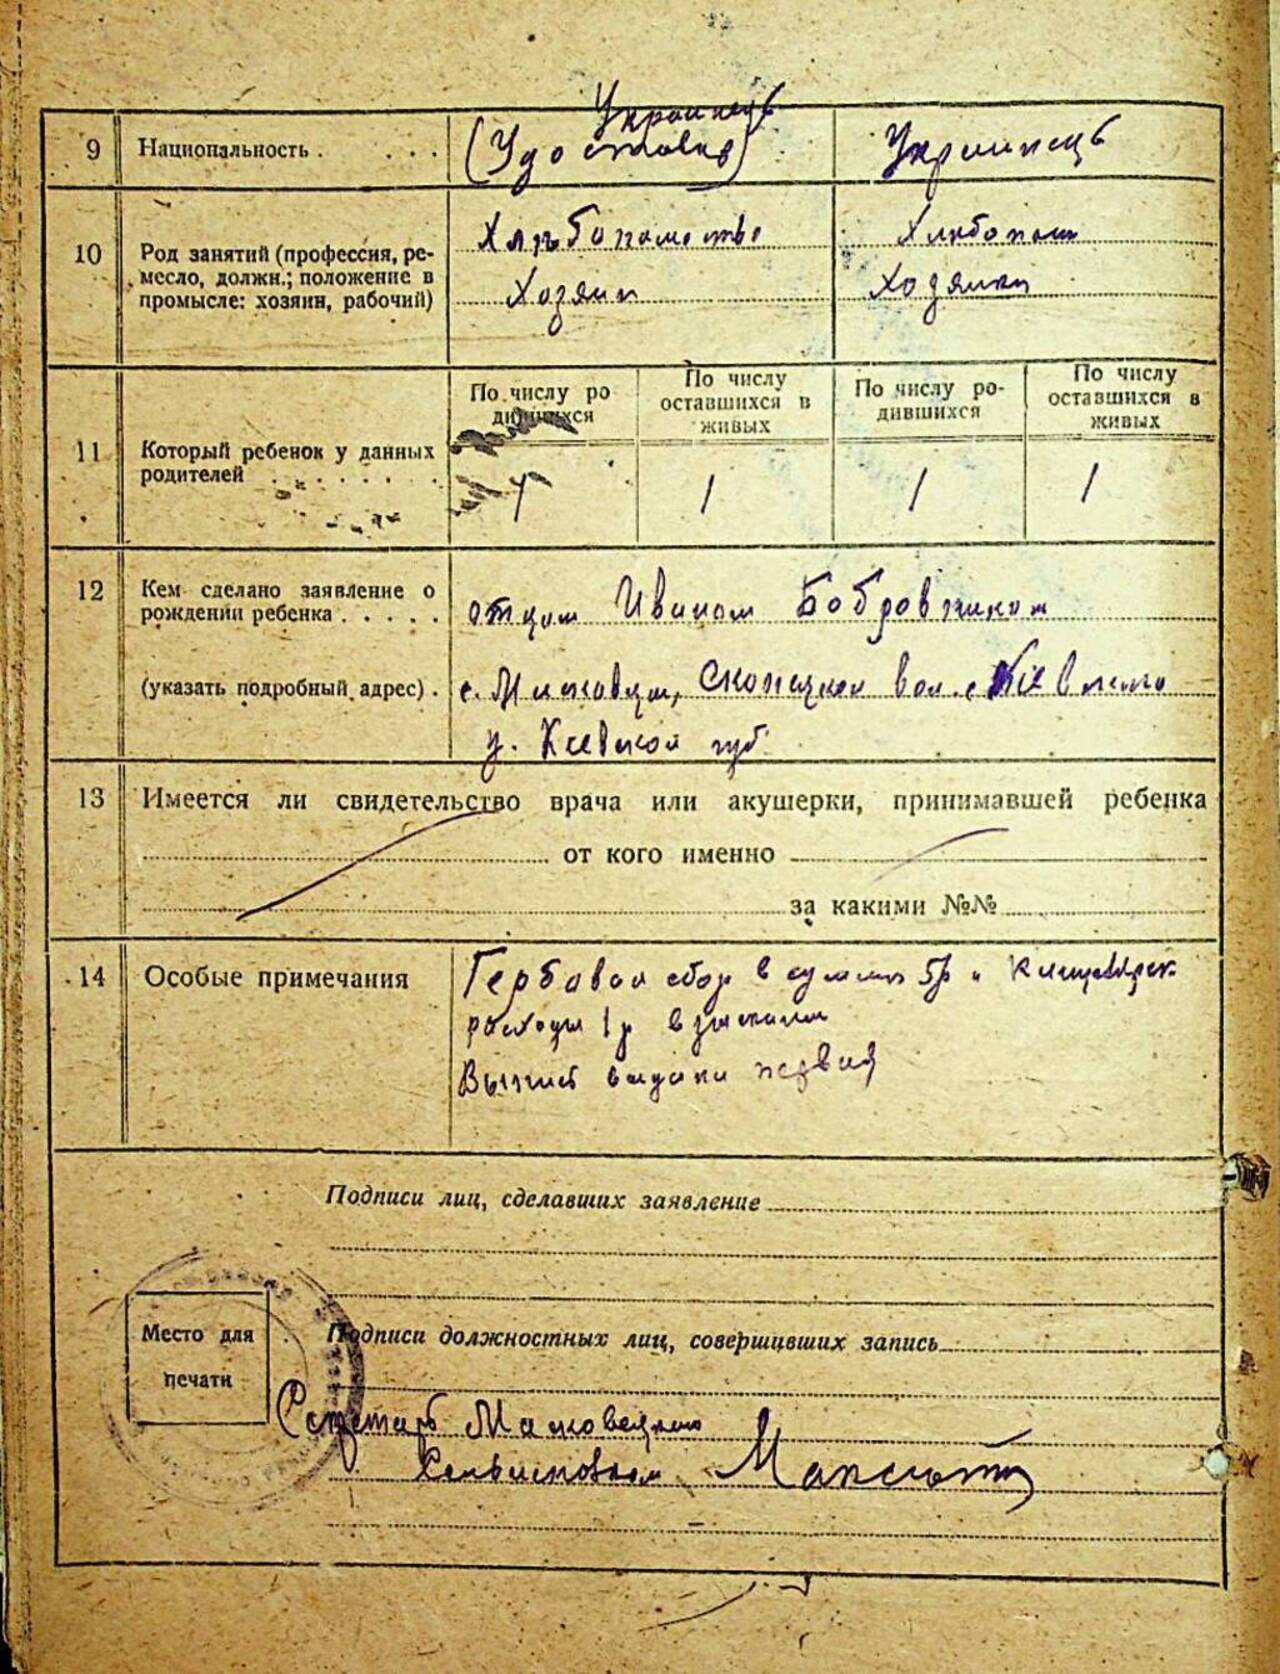 9 Национальность . . . . Украинець Украинець
(Удостовер)
10 Род занятий (профессия, ре-
месло, должн.; положение в
промысле: хозяин, рабочий)
Хлебопашество Хлебопаш
Хозяин Хозяика
11 Который ребенок у данных
родителей . . . . . . .
По числу ро
дившихся
По числу
оставшихся в
живых
По числу ро-
дившихся
По числу
оставшихся в
живых
1 1 1 1
12 Кем сделано заявление о
рождении ребенка . . . . .
отцом Иваном Бобровником
(указать подробный адрес) .
с. вол. Киевского
у. Киевской губ.
13 Имеется ли свидетельство врача или акушерки, принимавшей ребенка
от кого именно
за какими №№
14 Особые примечания
Гербовой сбор в сумме 5р и
расходы 1р взыскани
Выпись видана первая
Подписи лиц, сделавших заявление
Место для
печати
Подписи должностных лиц, совершивших запись
Секретарь